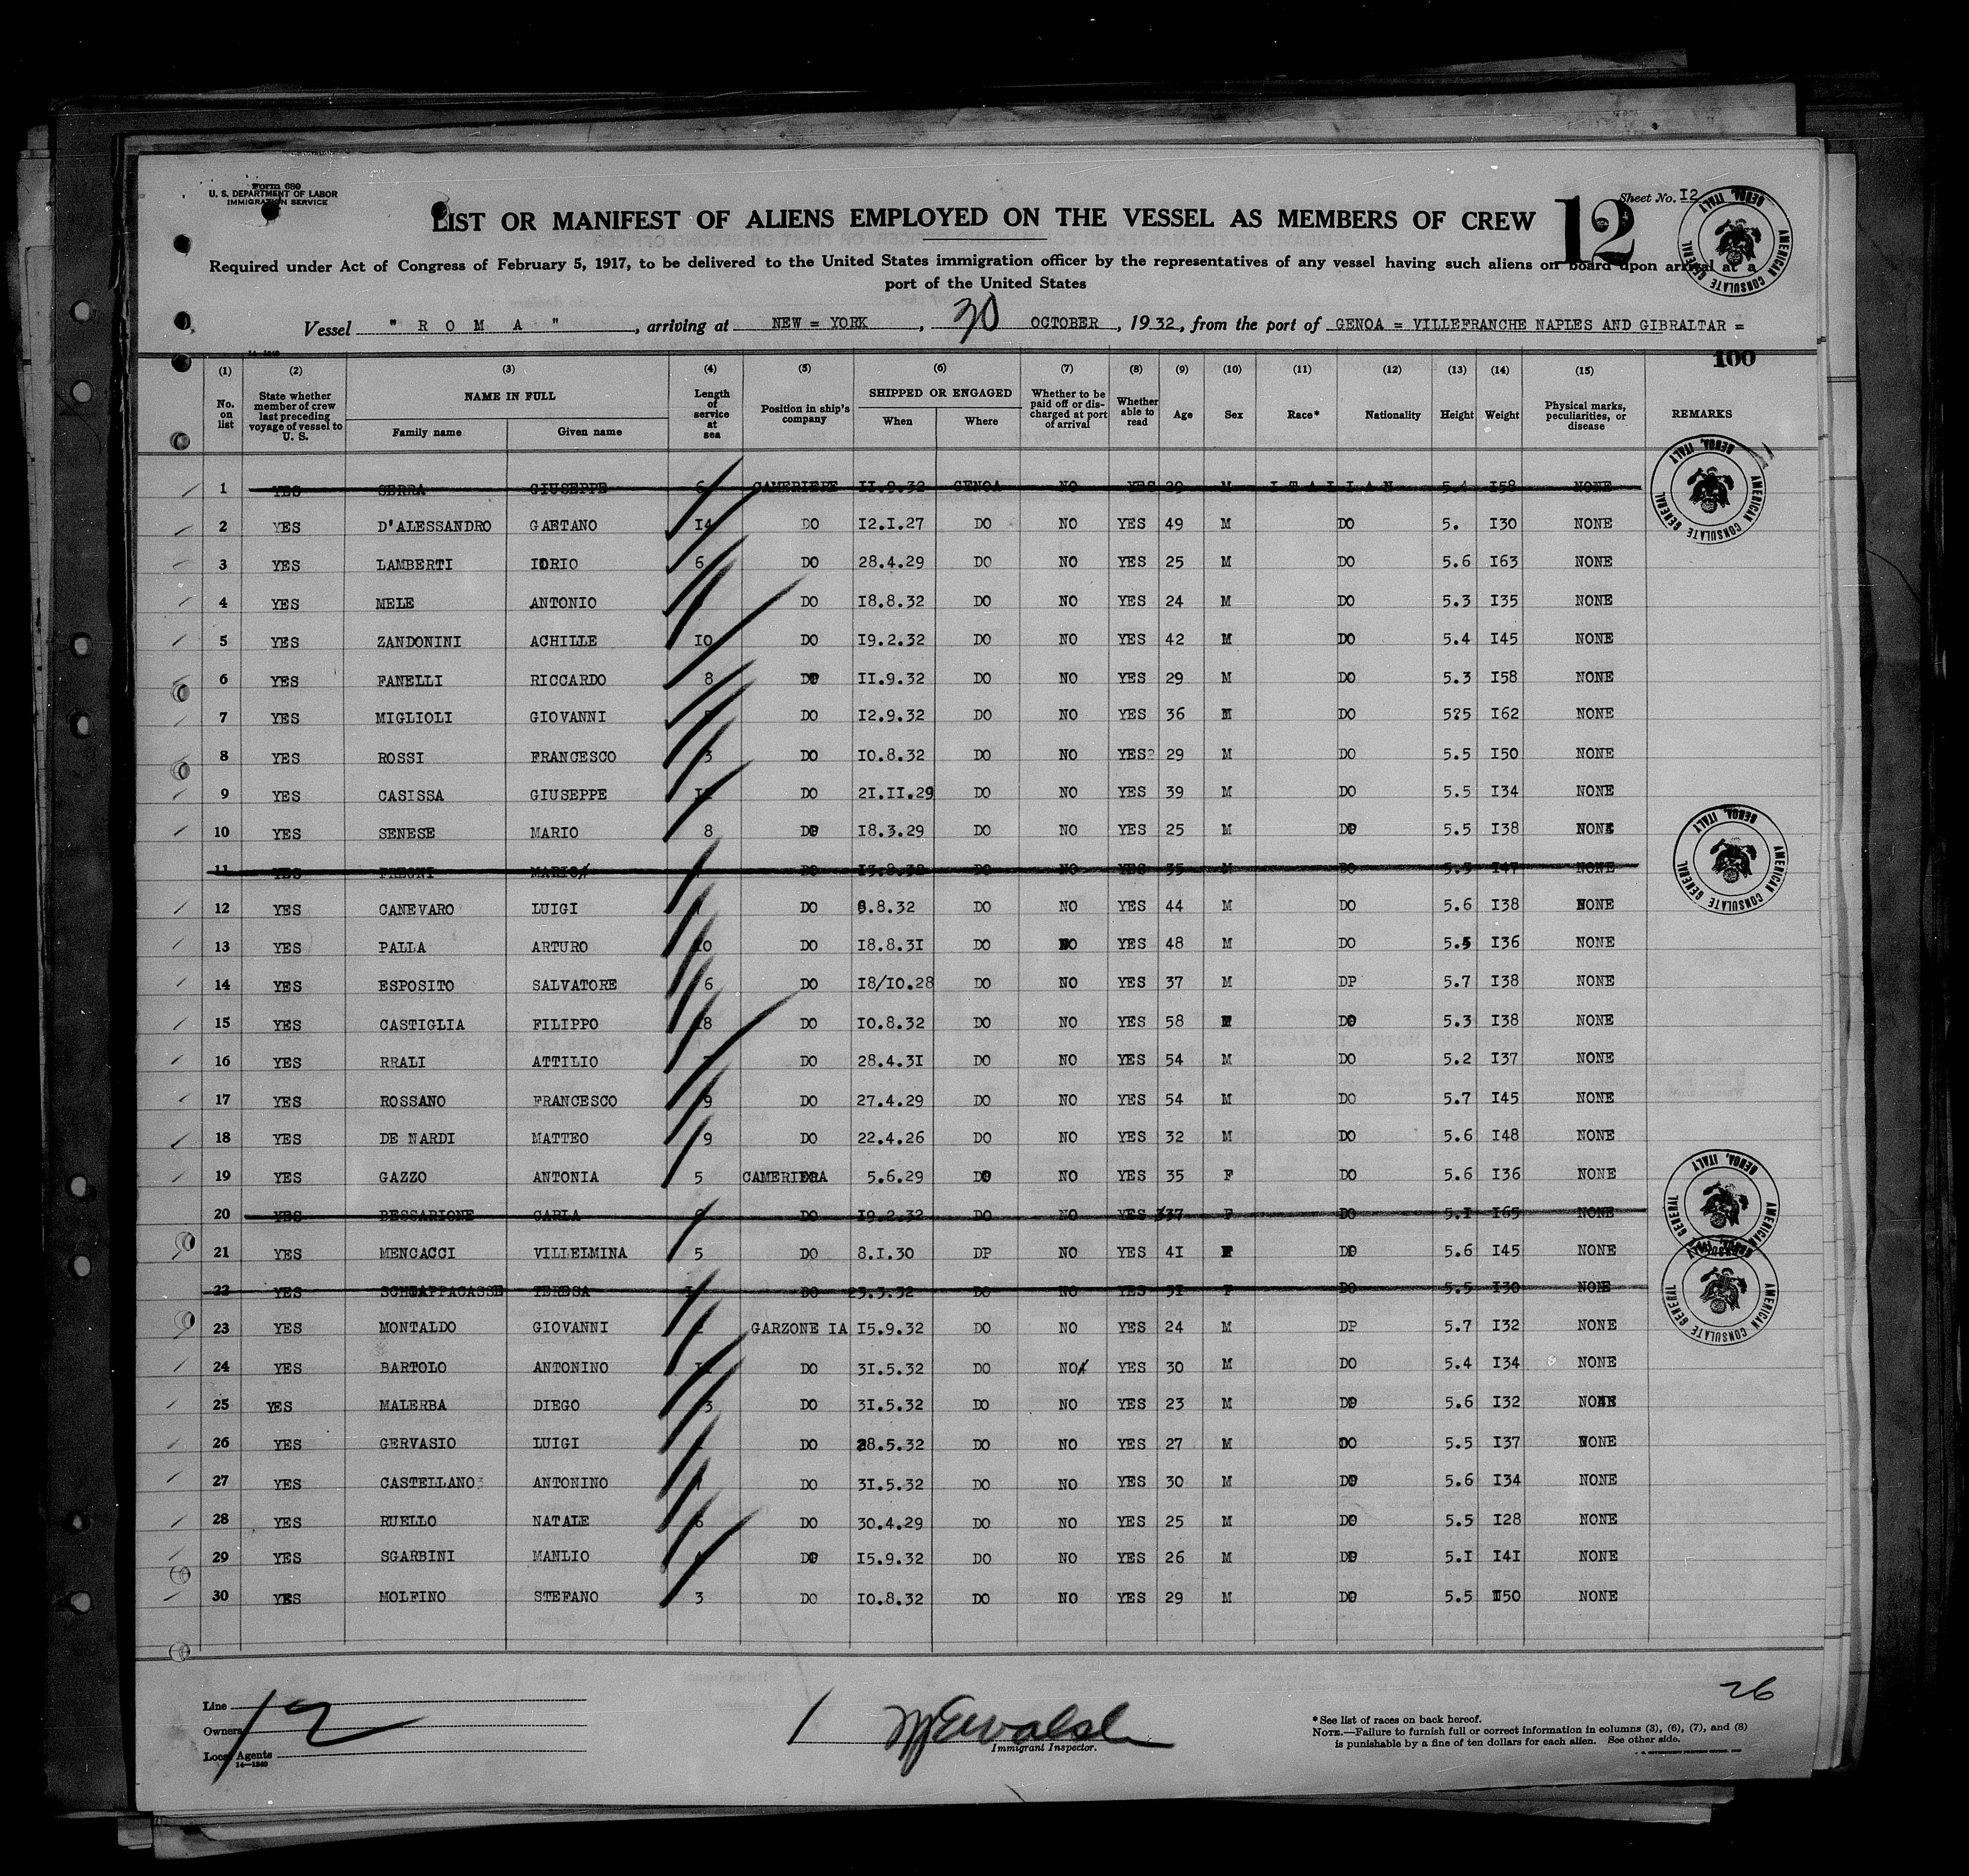 Form 680
U. S. DEPARTMENT OF LABOR
IMMIGRATION SERVICE
Sheet No. I2
12
LIST OR MANIFEST OF ALIENS EMPLOYED ON THE VESSEL AS MEMBERS OF CREW
Required under Act of Congress of February 5, 1917, to be delivered to the United States immigration officer by the representatives of any vessel having such aliens on board upon arrival at a
port of the United States
AMERICAN CONSULATE GENERAL GENOA, ITALY
Vessel " R O M A ", arriving at NEW = YORK, 30 OCTOBER, 1932, from the port of GENOA = VILLEFRANCHE NAPLES AND GIBRALTAR =
14-1240
100
(1) (2) (3) (4) (5) (6) (7) (8) (9) (10) (11) (12) (13) (14) (15)
No. on list | State whether member of crew last preceding voyage of vessel to U. S. | NAME IN FULL Family name Given name | Length of service at sea | Position in ship's company | SHIPPED OR ENGAGED When Where | Whether to be paid off or discharged at port of arrival | Whether able to read | Age | Sex | Race* | Nationality | Height | Weight | Physical marks, peculiarities, or disease | REMARKS
1 YES SERRA GIUSEPPE 6 CAMERIERE II.9.32 GENOA NO YES 29 M I T A L I A N 5.4 I58 NONE
AMERICAN CONSULATE GENERAL GENOA, ITALY
2 YES D'ALESSANDRO GAETANO I4 DO I2.I.27 DO NO YES 49 M DO 5. I30 NONE
3 YES LAMBERTI IDRIO 6 DO 28.4.29 DO NO YES 25 M DO 5.6 I63 NONE
4 YES MELE ANTONIO DO I8.8.32 DO NO YES 24 M DO 5.3 I35 NONE
5 YES ZANDONINI ACHILLE IO DO I9.2.32 DO NO YES 42 M DO 5.4 I45 NONE
6 YES FANELLI RICCARDO 8 DO II.9.32 DO NO YES 29 M DO 5.3 I58 NONE
7 YES MIGLIOLI GIOVANNI DO I2.9.32 DO NO YES 36 M DO 5?5 I62 NONE
8 YES ROSSI FRANCESCO 3 DO IO.8.32 DO NO YES? 29 M DO 5.5 I50 NONE
9 YES CASISSA GIUSEPPE DO 2I.II.29 DO NO YES 39 M DO 5.5 I34 NONE
10 YES SENESE MARIO 8 DO I8.3.29 DO NO YES 25 M DO 5.5 I38 NONE
AMERICAN CONSULATE GENERAL GENOA, ITALY
11 YES FREGNI MARIO DO I3.8.32 DO NO YES 35 M DO 5.5 I47 NONE
12 YES CANEVARO LUIGI DO 8.32 DO NO YES 44 M DO 5.6 I38 NONE
13 YES PALLA ARTURO DO I8.8.3I DO NO YES 48 M DO 5.5 I36 NONE
14 YES ESPOSITO SALVATORE 6 DO I8/IO.28 DO NO YES 37 M DP 5.7 I38 NONE
15 YES CASTIGLIA FILIPPO I8 DO IO.8.32 DO NO YES 58 M DO 5.3 I38 NONE
16 YES RRALI ATTILIO DO 28.4.3I DO NO YES 54 M DO 5.2 I37 NONE
17 YES ROSSANO FRANCESCO 9 DO 27.4.29 DO NO YES 54 M DO 5.7 I45 NONE
18 YES DE NARDI MATTEO 9 DO 22.4.26 DO NO YES 32 M DO 5.6 I48 NONE
19 YES GAZZO ANTONIA 5 CAMERIERA 5.6.29 DO NO YES 35 F DO 5.6 I36 NONE
AMERICAN CONSULATE GENERAL GENOA, ITALY
20 YES BESSARIONE CARLA DO I9.2.32 DO NO YES 37 F DO 5.I I65 NONE
21 YES MENCACCI VILLELMINA 5 DO 8.I.30 DP NO YES 4I F DO 5.6 I45 NONE
22 YES SCHIAPPACASSE TERESA DO 23.3.32 DO NO YES 3I F DO 5.5 I30 NONE
AMERICAN CONSULATE GENERAL GENOA, ITALY
23 YES MONTALDO GIOVANNI GARZONE IA I5.9.32 DO NO YES 24 M DP 5.7 I32 NONE
24 YES BARTOLO ANTONINO DO 3I.5.32 DO NO YES 30 M DO 5.4 I34 NONE
25 YES MALERBA DIEGO 3 DO 3I.5.32 DO NO YES 23 M DO 5.6 I32 NONE
26 YES GERVASIO LUIGI DO 28.5.32 DO NO YES 27 M DO 5.5 I37 NONE
27 YES CASTELLANO ANTONINO DO 3I.5.32 DO NO YES 30 M DO 5.6 I34 NONE
28 YES RUELLO NATALE 6 DO 30.4.29 DO NO YES 25 M DO 5.5 I28 NONE
29 YES SGARBINI MANLIO DO I5.9.32 DO NO YES 26 M DO 5.I I4I NONE
30 YES MOLFINO STEFANO 3 DO IO.8.32 DO NO YES 29 M DO 5.5 I50 NONE
26
Line
Owners
Local Agents
14-1240
12
Immigrant Inspector.
* See list of races on back hereof.
NOTE.—Failure to furnish full or correct information in columns (3), (6), (7), and (8)
is punishable by a fine of ten dollars for each alien. See other side.